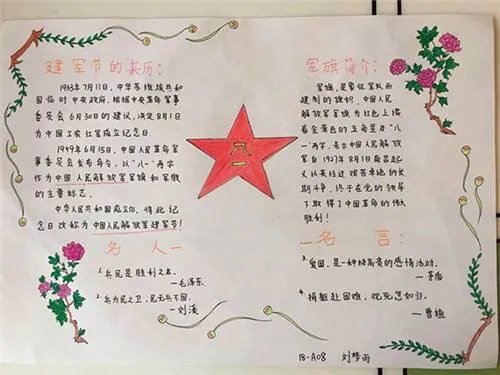 建军节的来历:
1933年7月11日,中华苏维埃共和
国临时中央政府,根据中央革命军事
委员会6月30日的建议,决定8月1日
为中国工农红军成立纪念日。
1949年6月15日,中国人民革命军
事委员会发布命令,以“八一”两字
作为中国人民解放军军旗和军徽
的主要标志。
中华人民共和国成立后,将此纪
念日改称为中国人民解放军建军节!
名人一
1、兵民是胜利之本。
—毛泽东
2、兵为民之卫,民无兵不固。
—刘溪
八一
军旗简介:
军旗,是象征军队而
建制的旗织,中国人民
解放军军旗为红色上缀
着金黄色的五角星及“八
一”两字,表示中国人民解放
军自1927年8月1日南昌起
义以来经过艰苦卓绝的长
期斗争,终于在党的领导
下取得了中国革命的伟大
胜利!
一名言:
1、爱国,是一种崇高贵的感情活动。
—茅盾
1、捐躯赴国难,视死忽如归。
—曹植
18-A08 刘梦雨